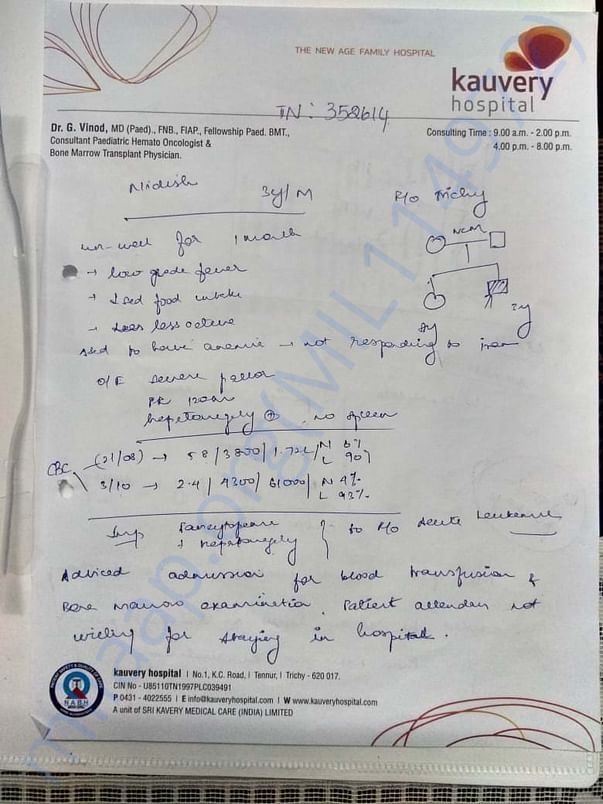 THE NEW AGE FAMILY HOSPITAL
kauvery
hospital
IN : 358614
Dr. G. Vinod, MD (Paed)., FNB., FIAP., Fellowship Paed. BMT.,
Consultant Paediatric Hemato Oncologist &
Bone Marrow Transplant Physician.
Consulting Time : 9.00 a.m. - 2.00 p.m.
4.00 p.m. - 8.00 p.m.
Nidish 3y/M R/o Trichy
NCM
un-well for 1 month
→ low grade fever
→ ↓sed food intake
→ less active
8y 3y
used to have anemia → not responding to iron
O/E severe pallor
PR 120/m
hepatomegaly + no spleen
CBC (21/08) → 5.8/3800/1.72L/N 6%
L 90%
3/10 → 2.4/4300/61000/N 4%
L 93%
Imp Pancytopenia
+ hepatomegaly } to R/o Acute Leukemia
Adviced admission for blood transfusion &
Bone marrow examination. Patient attenders not
willing for staying in hospital.
kauvery hospital | No.1, K.C. Road, | Tennur, | Trichy - 620 017.
CIN No - U85110TN1997PLC039491
P 0431 - 4022555 | E info@kauveryhospital.com | W www.kauveryhospital.com
A unit of SRI KAVERY MEDICAL CARE (INDIA) LIMITED
NABH